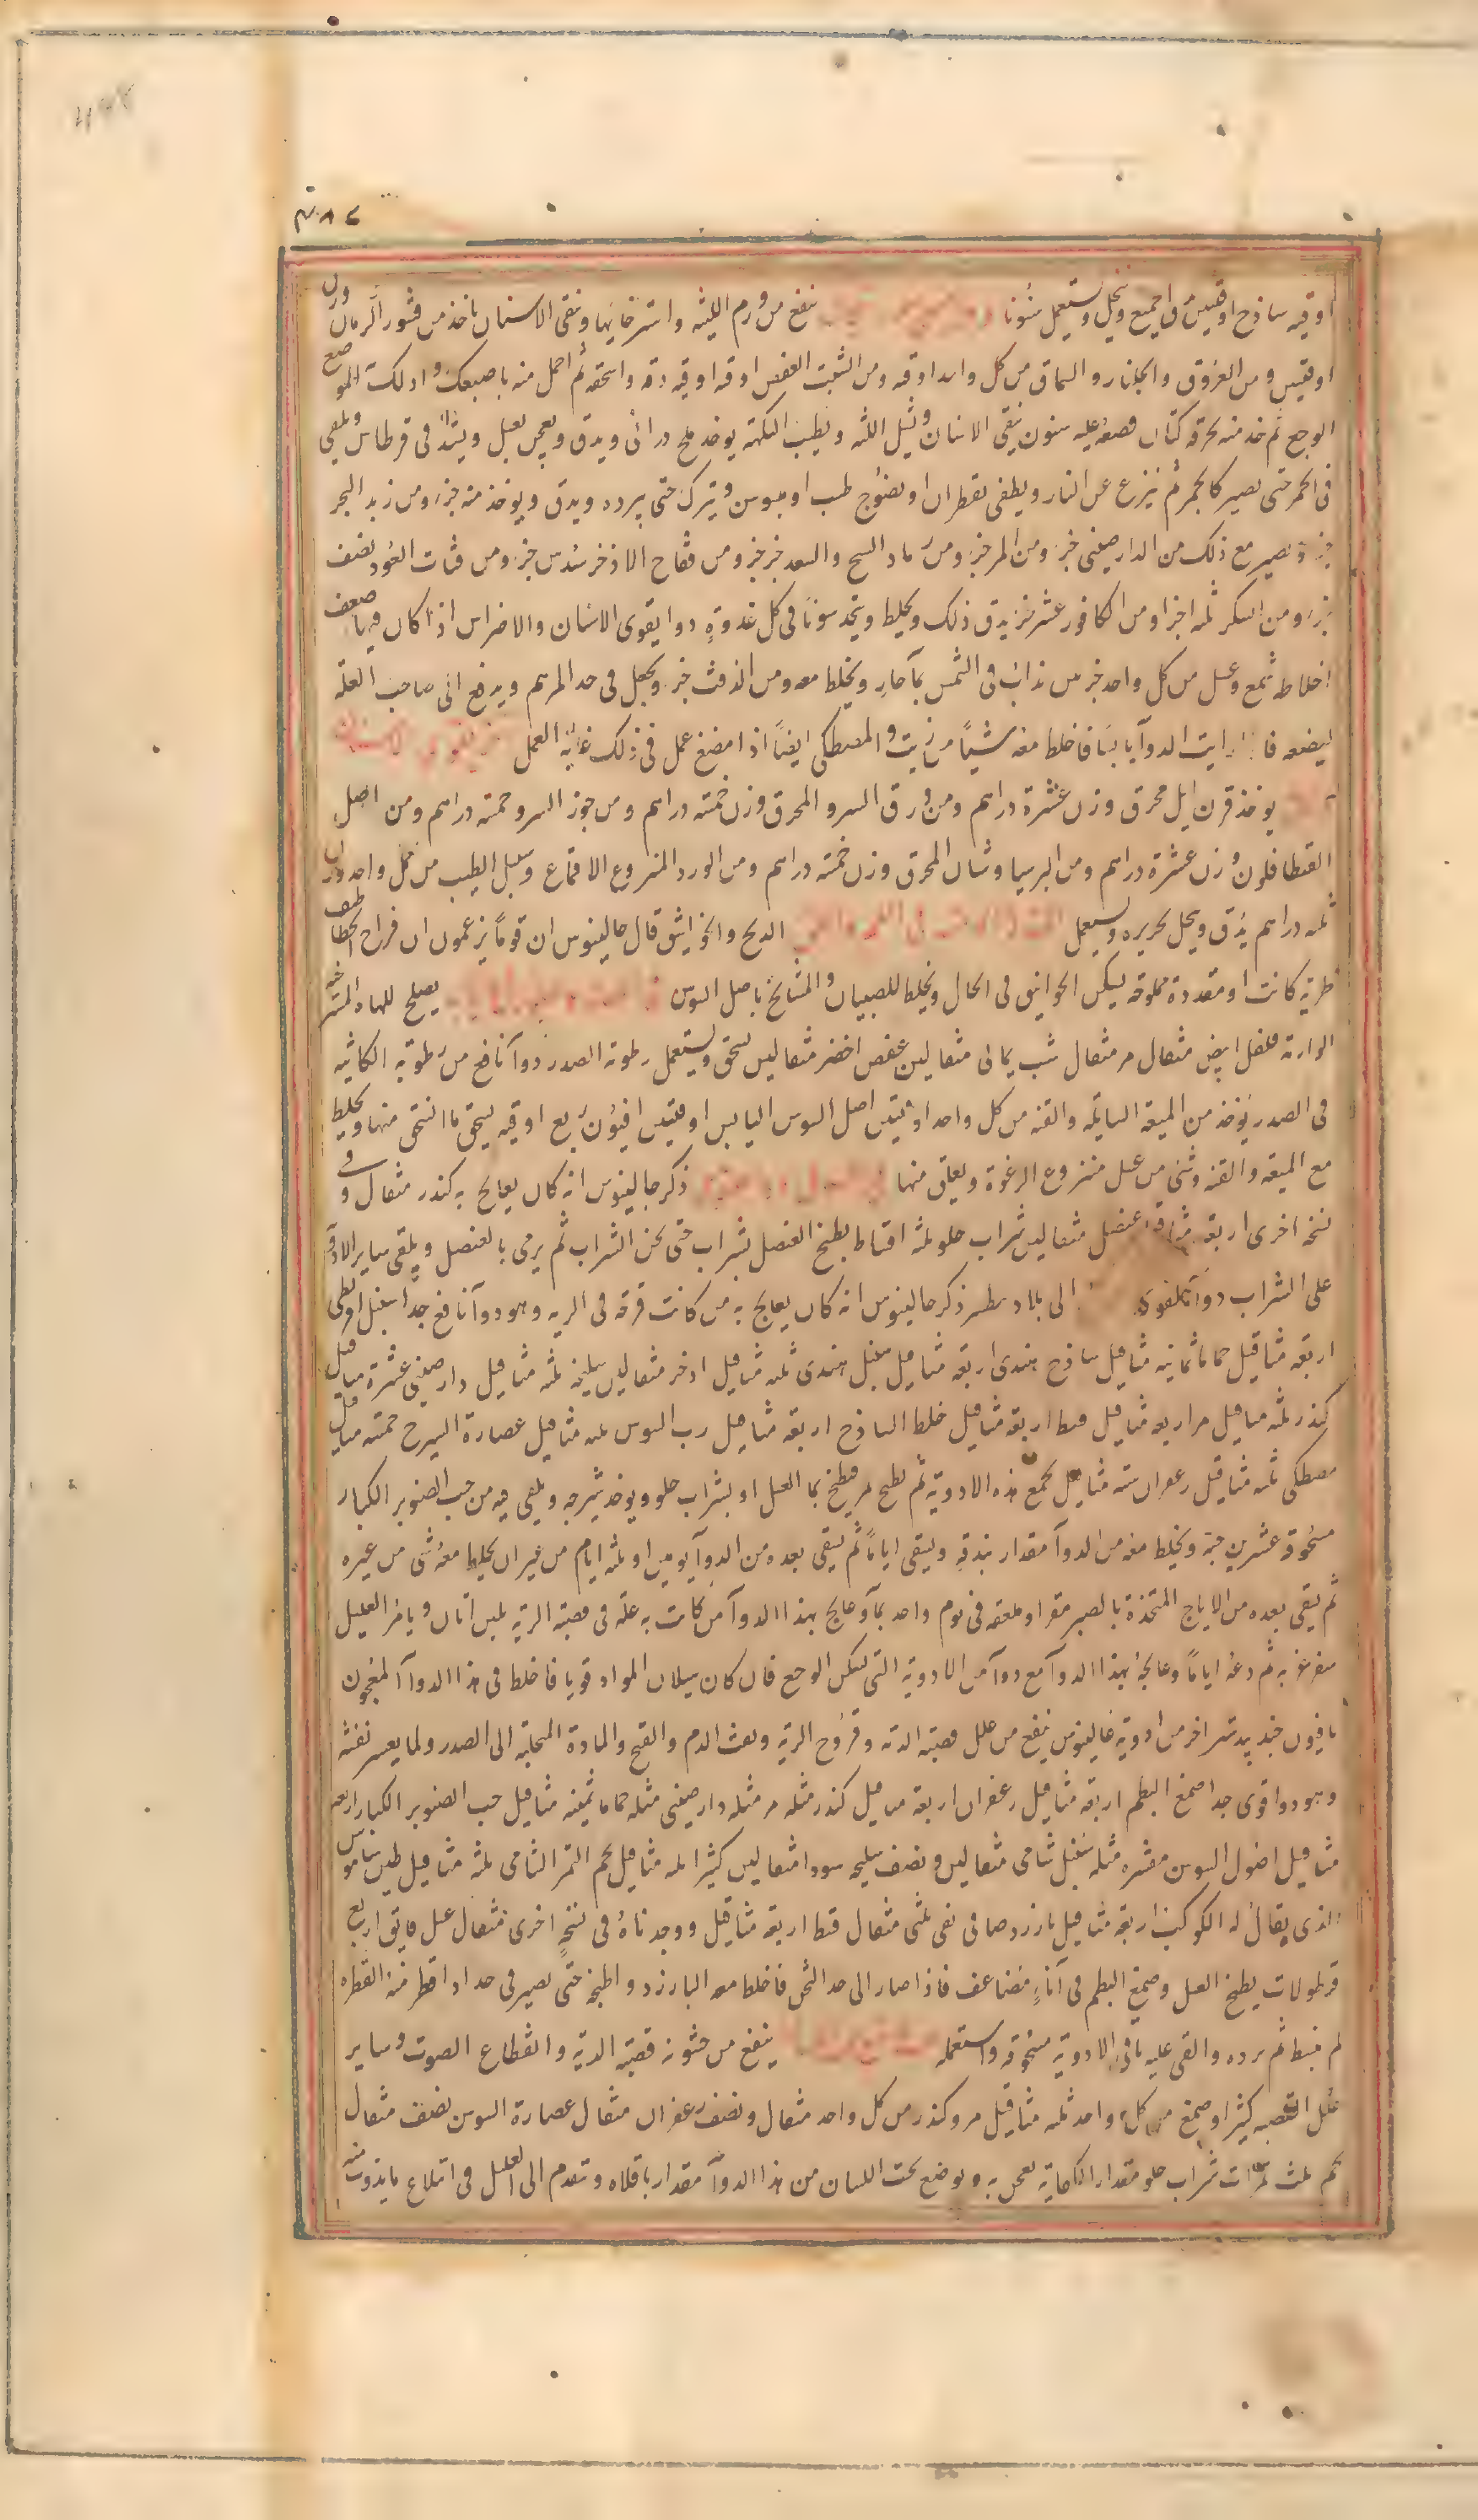 اوقيه ساذج اوقيتين دق الجميع وينخل ويستعمل سنونا ينفع من ورم اللثة واسترخائها وينقى الاسنان ياخذ من قشور الرمان وزن
اوقيتين ومن العروق والجلنار والسماق من كل واحد اوقيه ومن الشبت العفص اوقيه اوقيه دقه واسحقه ثم احمل منه باصبعك وادلك الموضع
الوجع ثم خذ منه بخرقه كتان فضعه عليه سنون ينقى الاسنان ويشد اللثه ويطيب النكهه يوخذ ملح درانى ويدق ويعجن بعسل ويشد فى قرطاس ويلقى
فى الجمر حتى يصير كالجمر ثم ينزع عن النار ويطفى بقطران او نضوج طيب او ميسوسن ويترك حتى يبرد ويدق ويوخذ منه جزء ومن زبد البحر
جزء ويصير مع ذلك من الدارصينى جزء ومن المر جزء ومن رماد الشيح والسعد جزء جزء ومن فقاح الاذخر سدس جزء ومن فتات العود نصف
جزء ومن السكر ثلثه اجزا ومن الكافور عشر جزء يدق ذلك ويخلط ويتخذ سنونا فى كل غدوة دوا يقوى الاسنان والاضراس اذا كان فيها ضعف
اخلاطه شمع وعسل من كل واحد جزء يذاب فى الشمس بماء حار ويخلط معه ومن الزفت جزء ويجعل فى حد المرهم ويدفع الى صاحب العله
ليضعه فاذا رايت الدوآء يابسا فاخلط معه شيئا من زيت والمصطكى ايضا اذا مضغ عمل فى ذلك غاية العمل
يوخذ قرن ايل محرق وزن عشرة دراهم ومن ورق السرو المحرق وزن خمسه دراهم ومن جوز السرو خمسه دراهم ومن اصل
القنطافلون وزن عشرة دراهم ومن البرسياوشان المحرق وزن خمسه دراهم ومن الورد المنزوع الاقماع وسنبل الطيب من كل واحد وزن
ثلثه دراهم يدق وينخل بحريره ويستعمل الذبح والخوانيق قال جالينوس ان قوما يزعمون ان فراخ الخطاطيف
طريه كانت او مقددة مملوحه يسكن الخوانيق فى الحال ويخلط للصبيان والمشايخ باصل السوس يصلح للهاه المسترخيه
الوارمه فلفل ابيض مثقال مر مثقال شب يمانى مثقالين عفص اخضر مثقالين يسحق ويستعمل رطوبه الصدر دوآ نافع من رطوبه الكائنه
فى الصدر يوخذ من الميعه السايله والقنه من كل واحد اوقيتين اصل السوس اليابس اوقيتين افيون ربع اوقيه يسحق ما انسحق منها ويخلط
مع الميعه والقنه وشى من عسل منزوع الرغوة ويلعق منها ذكر جالينوس انه كان يعالج به كندر مثقال وفى
نسخه اخرى اربعة مثاقيل عنصل مثقالين شراب حلو ثلثه اقساط يطبخ العنصل بشراب حتى يسخن الشراب ثم يرمى بالعنصل ويلقى ساير الادويه
على الشراب دوآ الى بلاد ذكر جالينوس انه كان يعالج به من كانت قرحه فى الريه وهو دوآ نافع جدا سنبل اوقليطى
اربعه مثاقيل حماما ثمانيه مثاقيل ساذج هندى اربعه مثاقيل سنبل هندى ثلثه مثاقيل اذخر مثقالين سليخه ثلثه مثاقيل دارصينى عشرة مثاقيل
كندر ثلثه مثاقيل مر اربعه مثاقيل قسط اربعه مثاقيل خلط الساذج اربعه مثاقيل رب السوس ثلثه مثاقيل عصارة اليبروح خمسه مثاقيل
مصطكى ثلثه مثاقيل زعفران سته مثاقيل يجمع هذه الادويه ثم يطبخ مر فيطبخ بما العسل او بشراب حلو ويوخذ شيرجه ويلقى فيه من حب الصنوبر الكبار
مسحوقه عشرين حبه ويخلط معه من الدوآ مقدار بندقه ويسقى اياما ثم يسقى بعده من الدوآ يومين او ثلثه ايام من غير ان يخلط معه شى من غيره
ثم يسقى بعده من الاياج المتخذة بالصبر مقدار ملعقه فى يوم واحد بماء وعالج بهذا الدوآ من كانت به علة فى قصبه الريه بلبن اتان ويامر العليل
يتغرغر به ثم دعه اياما وعالجه بهذا الدوآ مع دوآ من الادويه التى يسكن الوجع فان كان سيلان المواد قويا فاخلط فى هذا الدوآ المعجون
بافيون جندبيدستر اخر من ادويه جالينوس ينفع من علل قصبه الريه وقروح الريه ونفث الدم والقيح والمادة المتحلبه الى الصدر ولما يعسر نفثه
وهو دوا قوى جدا صمغ البطم اربعه مثاقيل زعفران اربعه مثاقيل كندر مثله مر مثله دارصينى مثله حماما ثمينه مثاقيل حب الصنوبر الكبار اربعه
مثاقيل اصول السوسن مقشره مثله سنبل شامى مثقالين ونصف سليخه سودا مثقالين كثيرا ثلثه مثاقيل لحم التمر الشامى ثلثه مثاقيل طين ساموس
الذى يقال له الكوكب اربعه مثاقيل بارزد صافى نقى ثلثى مثقال قسط اربعه مثاقيل ووجدناه فى نسخه اخرى مثقال عسل فايق اربع
قرطولات يطبخ العسل وصمغ البطم فى آناء مضاعف فاذا صار الى حد الثخن فاخلط معه البارزد واطبخه حتى يصير فى حد اذا قطر منه القطره
لم ينبسط ثم برده والقى عليه باقى الادويه مسحوقه واستعمله ينفع من خشونه قصبه الريه وانقطاع الصوت وساير
علل القصبه كثيرا وصمغ من كل واحد ثلثه مثاقيل مر وكندر من كل واحد مثقال ونصف زعفران مثقال عصارة السوسن نصف مثقال
لحم ثلث تمرات شراب حلو مقدار الكفايه يعجن به ويوضع تحت اللسان من هذا الدوآ مقدار باقلاه وتقدم الى العليل فى ابتلاع ما يذوب منه